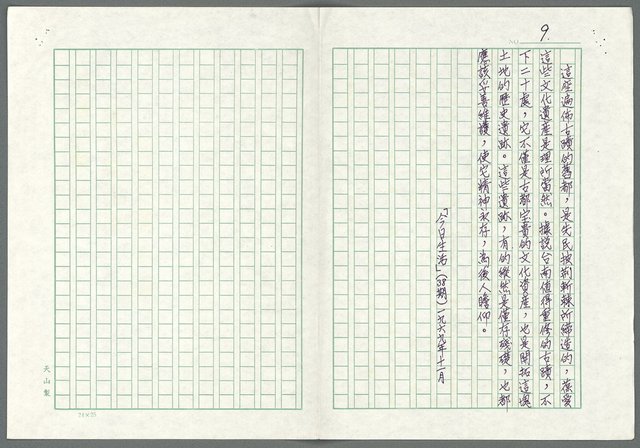 9.
NO.
這些遍佈古蹟的舊都，是先民披荊斬棘所締造的，葆愛
這些文化遺產是理所當然。據說台南值得重修的古蹟，不
下二十處，它不僅是古都宝貴的文化資產，也是開拓這塊
土地的歷史遺跡。這些遺跡，有的縱然是僅存殘礎，也都
應該妥善維護，使它精神永存，為後人瞻仰。
「今日生活」(38期)一九六九年十一月
天山製
24×25